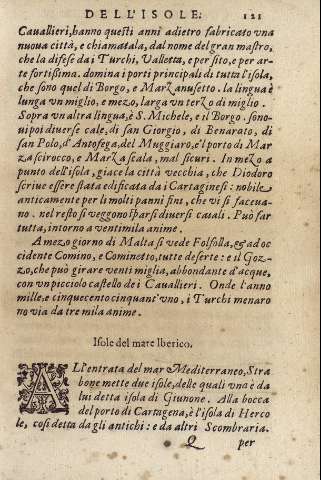 DELL'ISOLE. 121
Cauallieri, hanno questi anni adietro fabricato vna
nuoua città, e chiamatala, dal nome del gran mastro,
che la difese da i Turchi, Valletta, e per sito, e per ar-
te fortissima. domina i porti principali di tutta l'isola,
che sono quel di Borgo, e Marzanusetto. la lingua è
lunga vn miglio, e mezo, larga vn terzo di miglio.
Sopra vn altra lingua, è S. Michele, e il Borgo. sono-
ui poi diuerse cale, di san Giorgio, di Benarato, di
san Polo, d'Antofega, del Muggiaro, e'l porto di Mar-
za scirocco, e Marza scala, mal sicuri. In mezo a
punto dell'isola, giace la città vecchia, che Diodoro
scriue essere stata edificata da i Cartaginesi: nobile
anticamente per li molti panni fini, che vi si faceua-
no. nel resto si veggono sparsi diuersi casali. Può far
tutta, intorno a ventimila anime.
A mezo giorno di Malta si vede Folfolla, & ad oc
cidente Comino, e Cominotto, tutte deserte: e il Goz-
zo, che può girare venti miglia, abbondante d'acque,
con vn picciolo castello dei Cauallieri. Onde l'anno
mille, e cinquecento cinquant'vno, i Turchi menaro
no via da tre mila anime.
Isole del mare Iberico.
ALl'entrata del mar Mediterraneo, Stra
bone mette due isole, delle quali vna è da
lui detta isola di Giunone. Alla bocca
del porto di Cartagena, è l'isola di Herco
le, così detta da gli antichi: e da altri Scombraria.
Q per